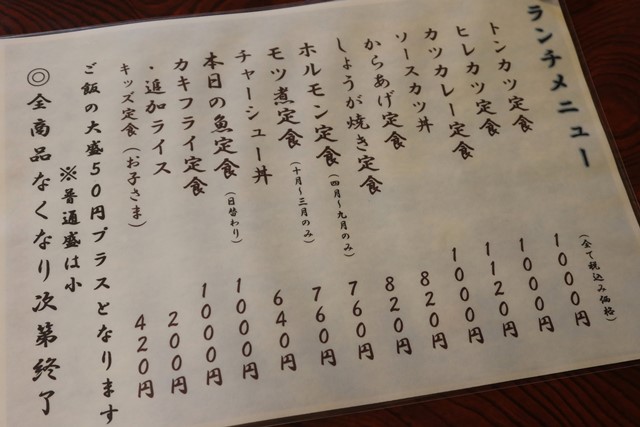 ランチメニュー
(全て税込み価格)
トンカツ定食 1000円
ヒレカツ定食 1000円
カツカレー定食 1120円
ソースカツ丼 1000円
からあげ定食 820円
しょうが焼き定食 820円
ホルモン定食(四月〜九月のみ) 760円
モツ煮定食(十月〜三月のみ) 760円
チャーシュー丼 640円
本日の魚定食(日替わり) 1000円
カキフライ定食 1000円
・追加ライス 200円
キッズ定食(お子さま) 420円
ご飯の大盛50円プラスとなります
※普通盛は小
◎全商品なくなり次第終了